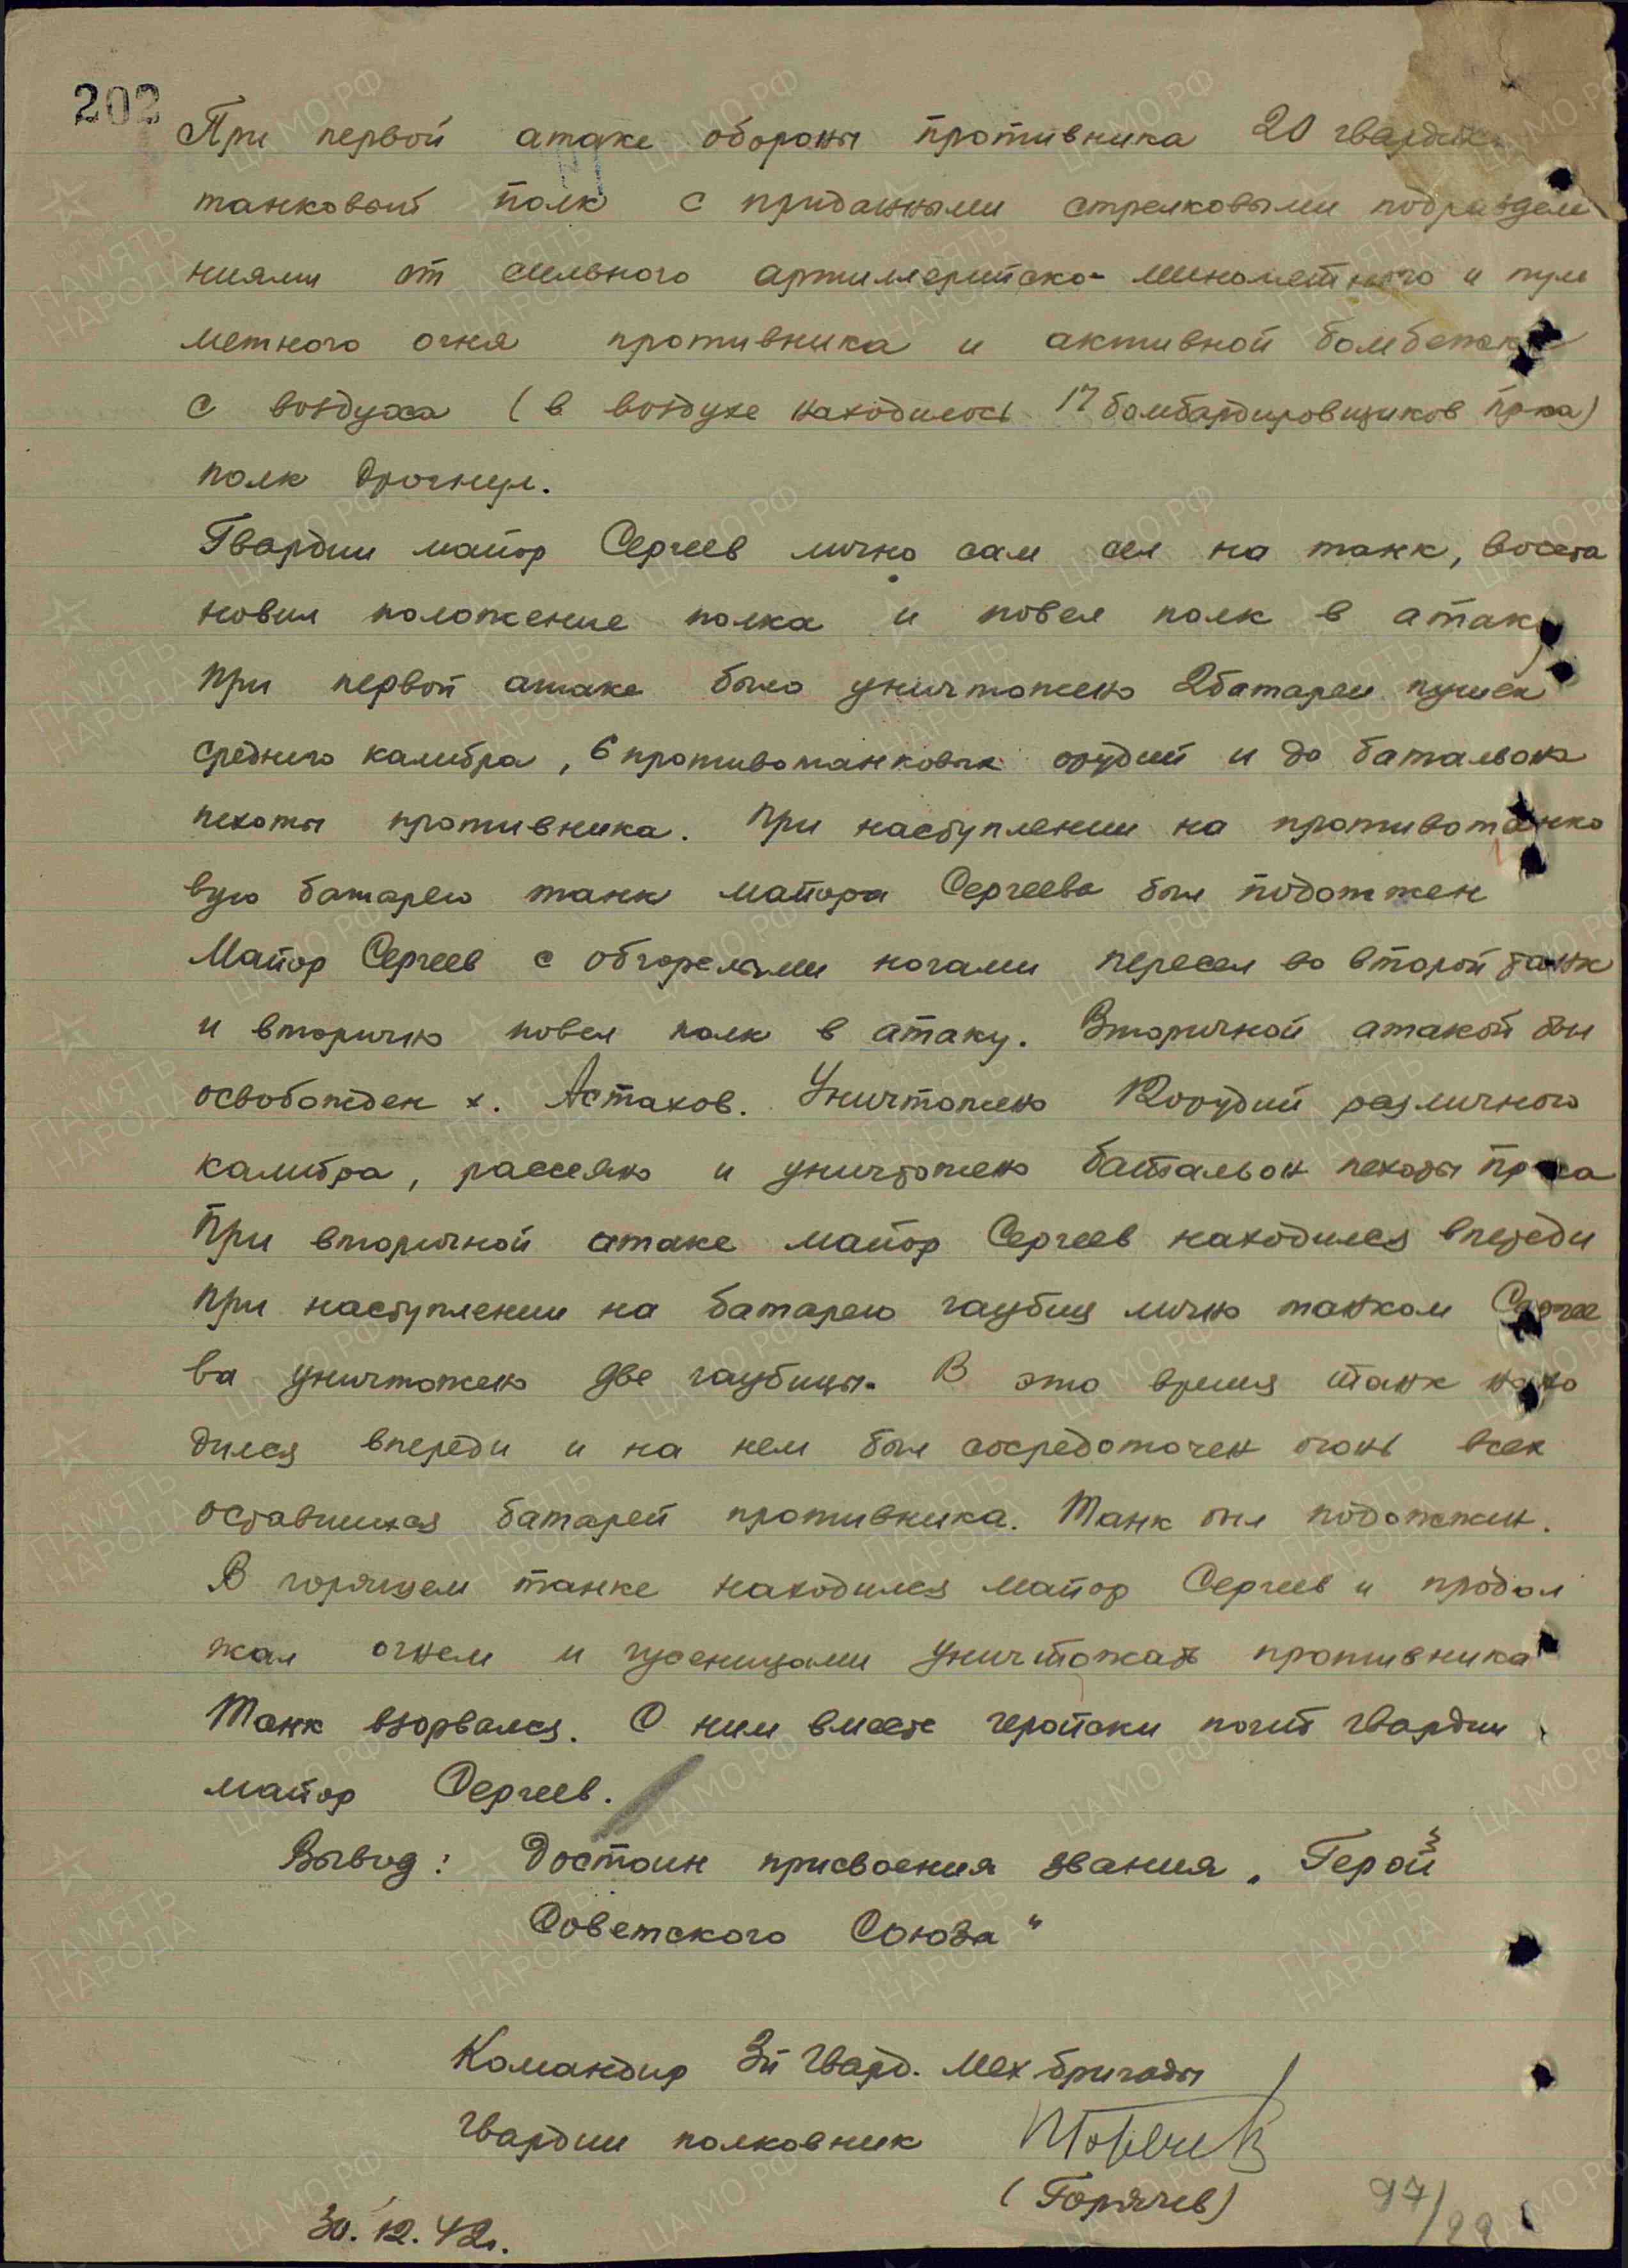 202
При первой атаке обороны противника 20 гвардии
танковый полк с приданными стрелковыми подразделе
ниями от сильного артиллерийско-минометного и пуле
метного огня противника и активной бомбежке
с воздуха (в воздухе находилось 17 бомбардировщиков пр-ка)
полк дрогнул.
Гвардии майор Сергеев лично сам сел на танк, восста
новил положение полка и повел полк в атаку
При первой атаке было уничтожено 2 батареи пушек
среднего калибра, 6 противотанковых орудий и до батальона
пехоты противника. При наступлении на противотанко
вую батарею танк майора Сергеева был подожжен
Майор Сергеев с обгорелыми ногами пересел во второй танк
и вторично повел полк в атаку. Вторичной атакой был
освобожден х. Астахов. Уничтожено 12 орудий различного
калибра, рассеяно и уничтожено батальон пехоты пр-ка
При вторичной атаке майор Сергеев находился впереди
при наступлении на батарею гаубиц лично танком Сергее
ва уничтожено две гаубицы. В это время танк нахо
дился впереди и на нем был сосредоточен огонь всех
оставшихся батарей противника. Танк был подожжен.
В горящем танке находился майор Сергеев и продол
жал огнем и гусеницами уничтожать противника
Танк взорвался. С ним вместе геройски погиб гвардии
майор Сергеев.
Вывод: Достоин присвоения звания „Герой
Советского Союза“
Командир 3й Гвард. мех бригады
гвардии полковник
(Горячев)
30.12.42г.
97/
ЦА МО РФ
ПАМЯТЬ НАРОДА